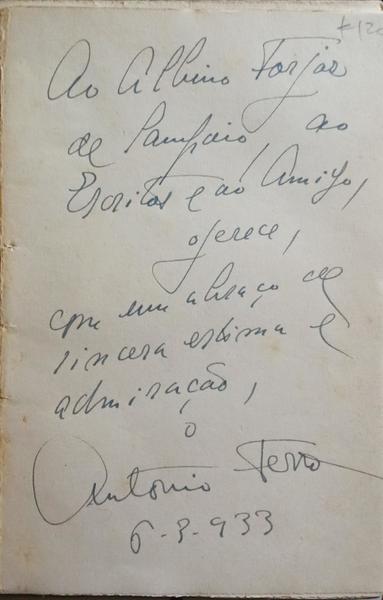 Ao Albino Forjaz
de Sampaio, ao
Escritor e ao Amigo,
oferece,
com um abraço de
sincera estima e
admiração,
o
António Ferro
6-3-933